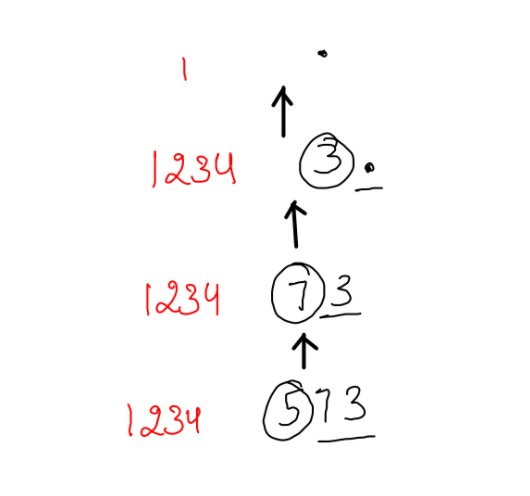 1 .
1234 3 .
1234 7 3
1234 5 7 3